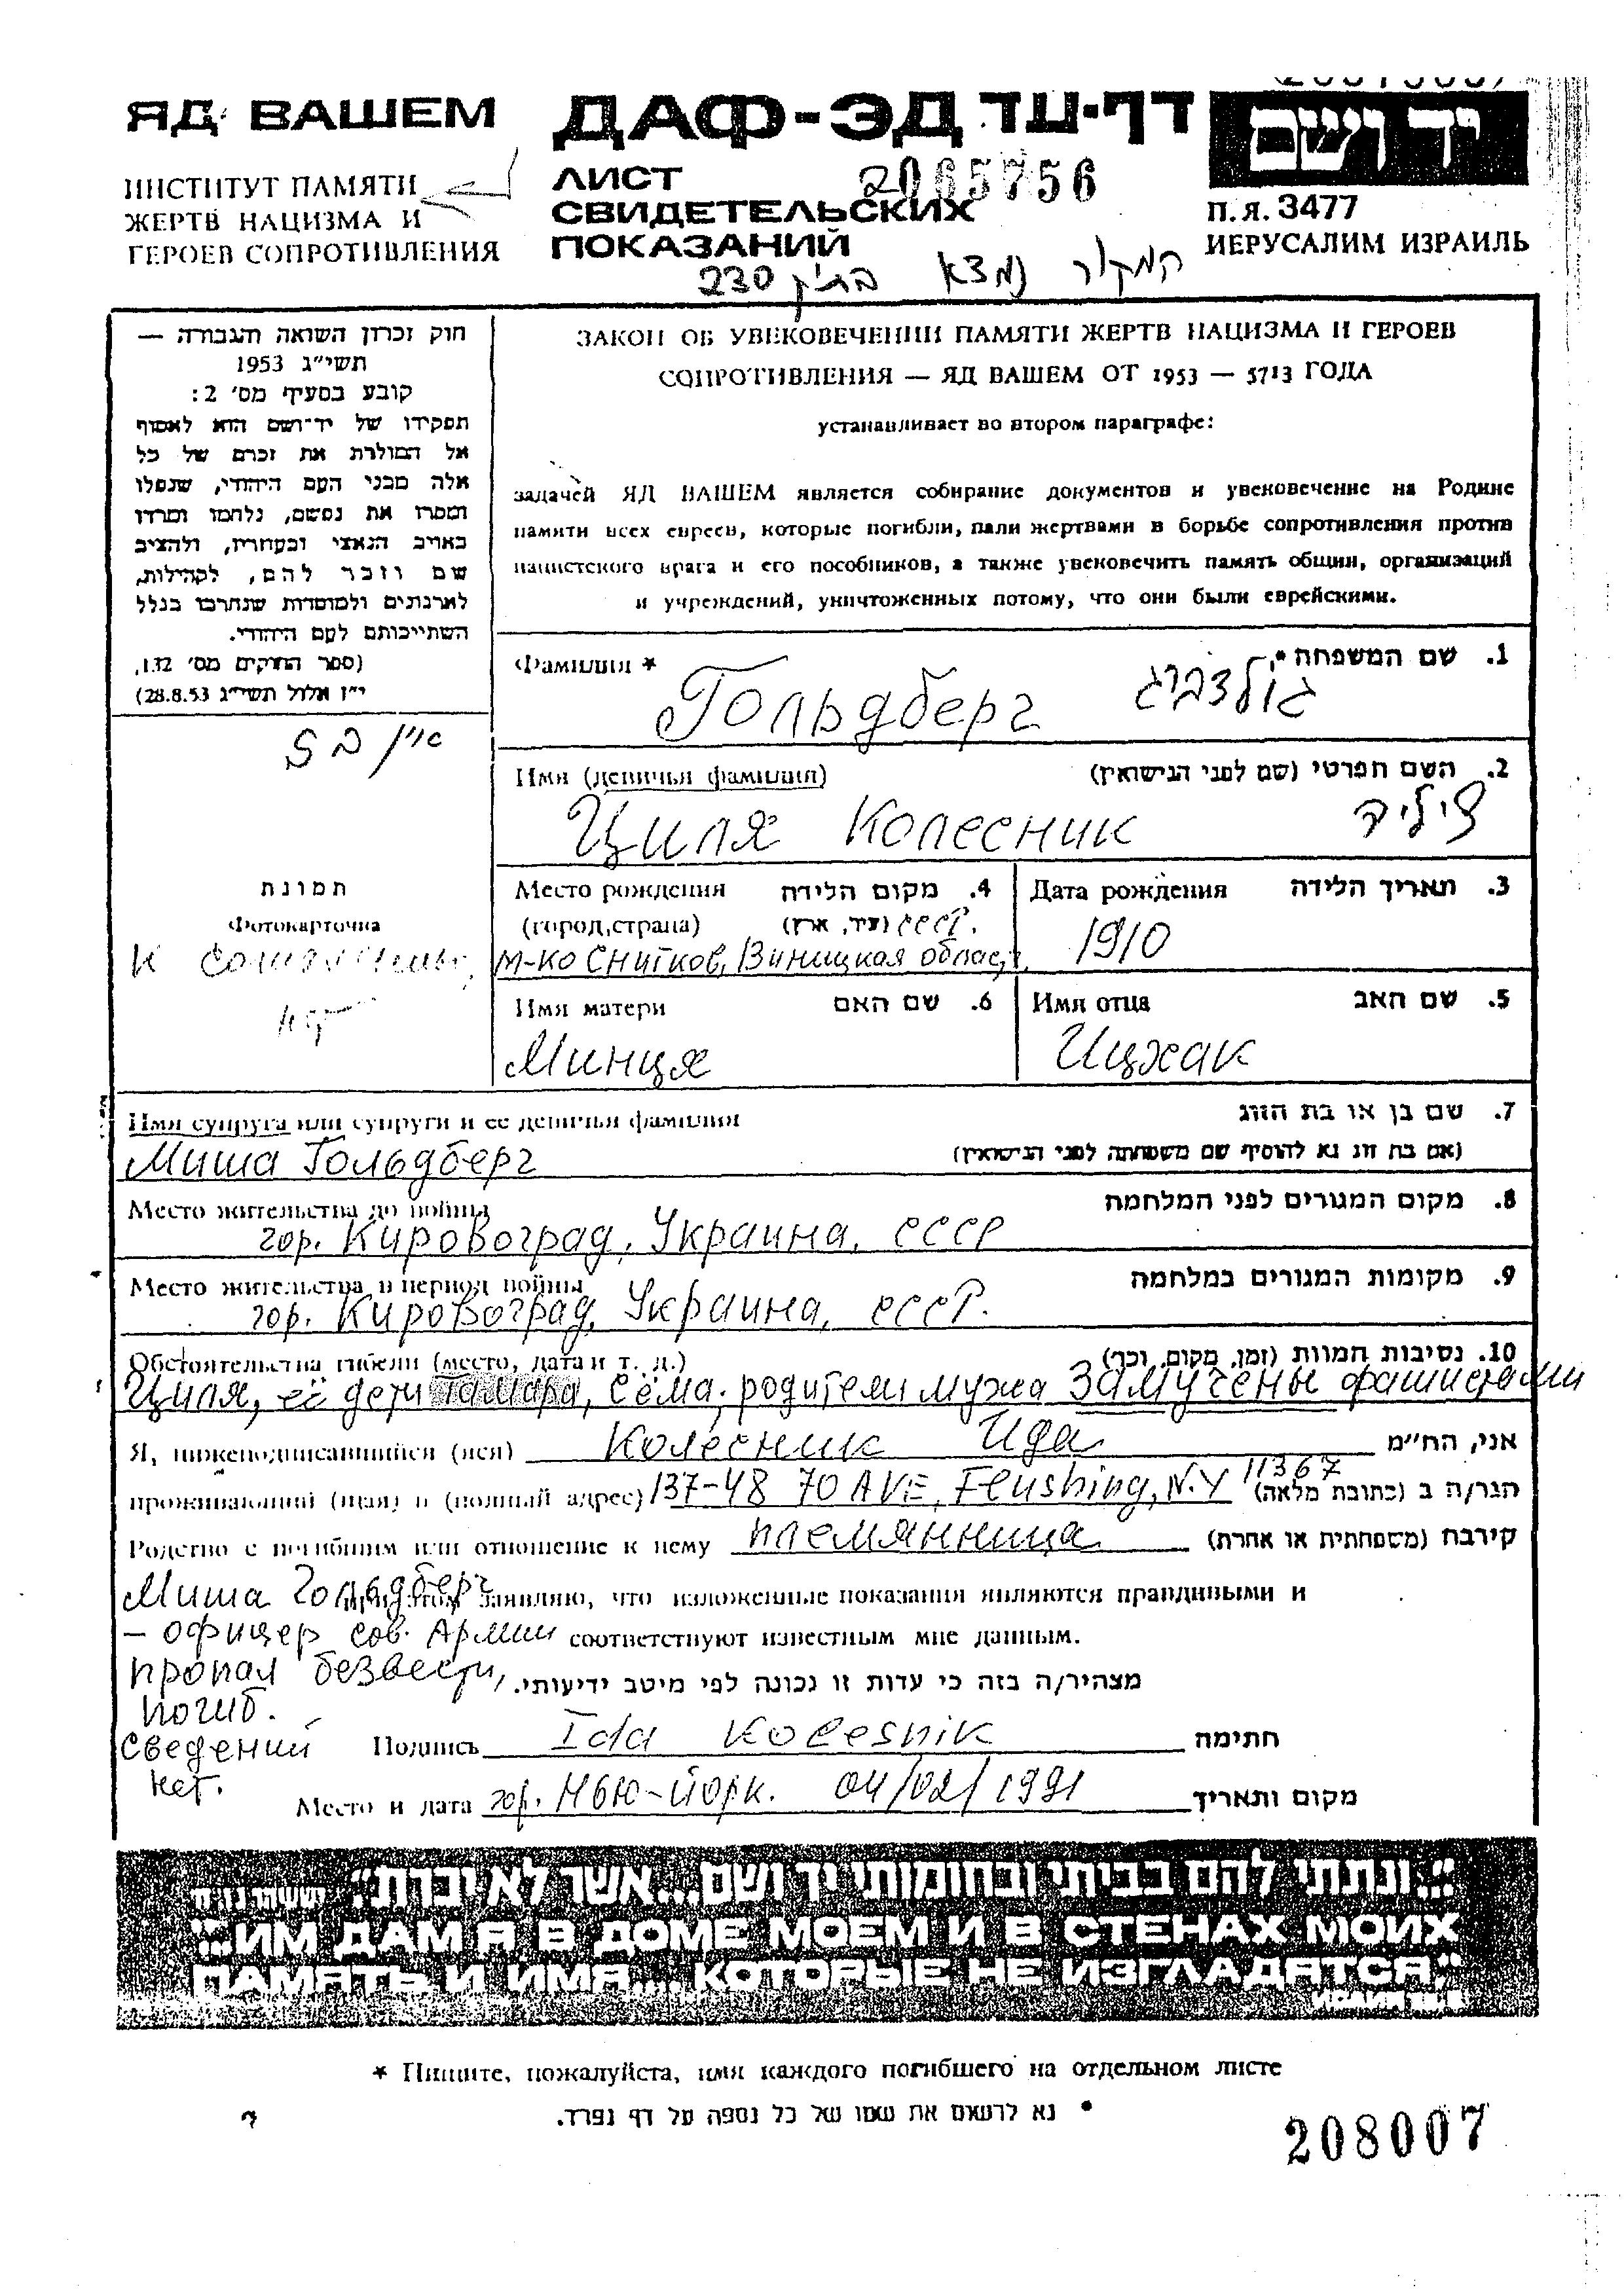 ЯД ВАШЕМ
ИНСТИТУТ ПАМЯТИ
ЖЕРТВ НАЦИЗМА И
ГЕРОЕВ СОПРОТИВЛЕНИЯ
ДАФ-ЭД דף-עד
ЛИСТ
СВИДЕТЕЛЬСКИХ
ПОКАЗАНИЙ
2065756
המקור נמצא בתיק 230
יד ושם
П.Я. 3477
ИЕРУСАЛИМ ИЗРАИЛЬ
חוק זכרון השואה והגבורה —
תשי״ג 1953
קובע בסעיף מס׳ 2:
תפקידו של יד־ושם הוא לאסוף
אל המולדת את זכרם של כל
אלה מבני העם היהודי, שנפלו
ומסרו את נפשם, נלחמו ומרדו
באויב הנאצי ובעוזריו, ולהציב
שם וזכר להם, לקהילות,
לארגונים ולמוסדות שנחרבו בגלל
השתייכותם לעם היהודי.
(ספר החוקים מס׳ 132,
י״ז אלול תשי״ג 28.8.53)
ЗАКОН ОБ УВЕКОВЕЧЕНИИ ПАМЯТИ ЖЕРТВ НАЦИЗМА И ГЕРОЕВ
СОПРОТИВЛЕНИЯ — ЯД ВАШЕМ ОТ 1953 — 5713 ГОДА
устанавливает во втором параграфе:
задачей ЯД ВАШЕМ является собирание документов и увековечение на Родине
памяти всех евреев, которые погибли, пали жертвами в борьбе сопротивления против
нацистского врага и его пособников, а также увековечить память общин, организаций
и учреждений, уничтоженных потому, что они были еврейскими.
Фамилия * 1. שם המשפחה *
Гольдберг גולדברג
Имя (девичья фамилия) 2. השם הפרטי (שם לפני הנישואין)
Циля Колесник ציליה
תמונה
Фотокарточка
К сожалению,
нет
Место рождения 4. מקום הלידה
(город, страна) (עיר, ארץ) СССР.
м-ко Снитков, Виницкая област,
Дата рождения 3. תאריך הלידה
1910
Имя матери 6. שם האם
Минця
Имя отца 5. שם האב
Ицхак
Имя супруга или супруги и ее девичья фамилия 7. שם בן או בת הזוג
Миша Гольдберг (אם בת זוג נא להוסיף שם משפחתה לפני הנישואין)
Место жительства до войны 8. מקום המגורים לפני המלחמה
гор. Кировоград, Украина, СССР
Место жительства в период войны 9. מקומות המגורים במלחמה
гор. Кировоград, Украина, СССР.
Обстоятельства гибели (место, дата и т. д.) 10. נסיבות המוות (זמן, מקום, וכו׳)
Циля, её дети Тамара, Сёма, родители мужа замучены фашистами
Я, нижеподписавшийся (аяся) Колесник Ида אני, הח״מ
проживающий (щая) в (полный адрес) 137-48 70 AVE, Flushing, N.Y 11367 הגר/ה ב (כתובת מלאה)
Родство с погибшим или отношение к нему племянница קירבה (משפחתית או אחרת)
Миша Гольдберг
- офицер сов. Армии
пропал безвести,
погиб.
сведений
нет.
при этом заявляю, что изложенные показания являются правдивыми и
соответствуют известным мне данным.
מצהיר/ה בזה כי עדות זו נכונה לפי מיטב ידיעותי.
Подпись Ida Kolesnik חתימה
Место и дата гор. Нью-Йорк. 04/02/1991 מקום ותאריך
״...ונתתי להם בביתי ובחומותי יד ושם... אשר לא יכרת״
״...ИМ ДАМ Я В ДОМЕ МОЕМ И В СТЕНАХ МОИХ
ПАМЯТЬ И ИМЯ... КОТОРЫЕ НЕ ИЗГЛАДЯТСЯ״
* Пишите, пожалуйста, имя каждого погибшего на отдельном листе
* נא לרשום את שמו של כל נספה על דף נפרד.
208007